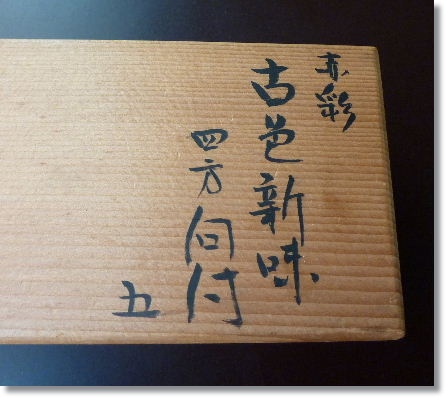 赤彩
古邑新味
四方向付
五